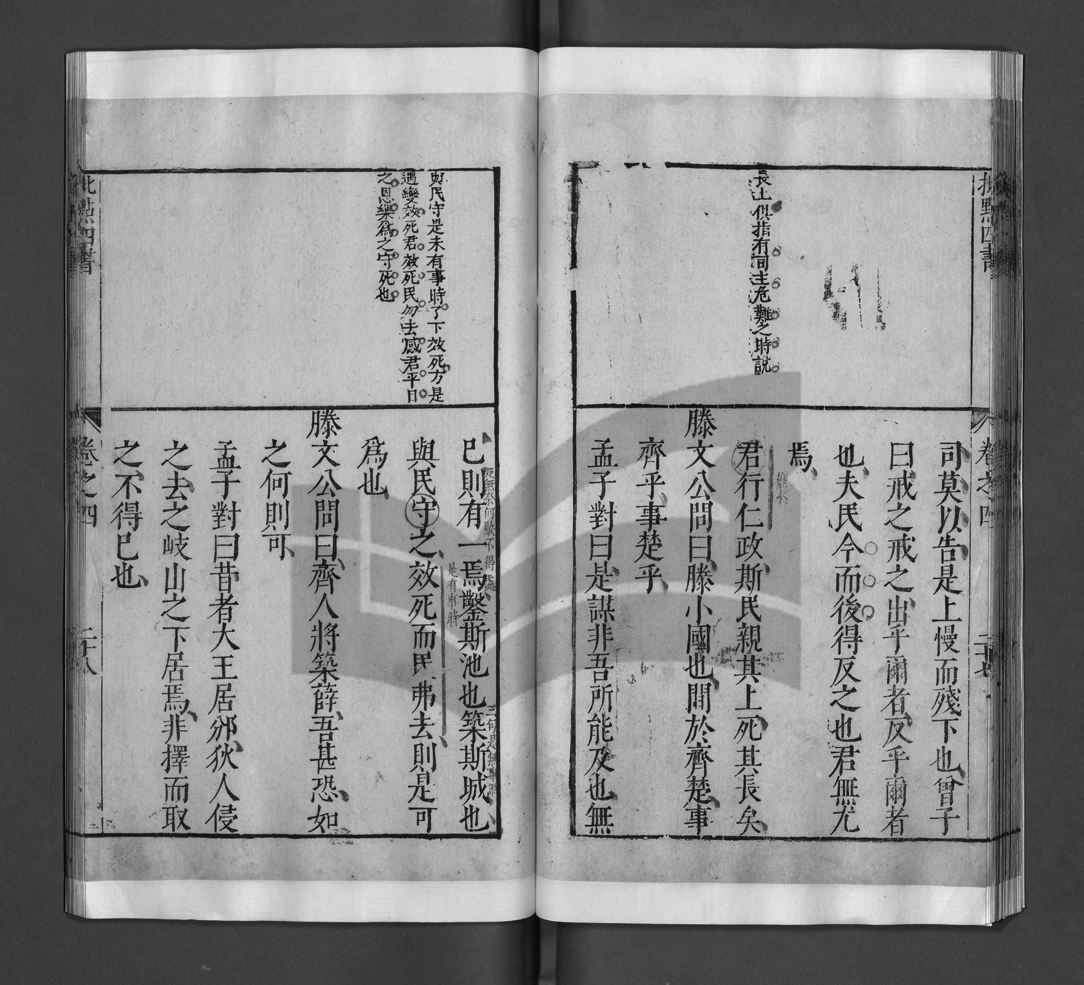 批點四書
卷之四
二十七
長上俱指有司主危難之時說
司莫以告是上慢而殘下也曾子
曰戒之戒之出乎爾者反乎爾者
也夫民今而後得反之也君無尤
焉
君行仁政斯民親其上死其長矣
滕文公問曰滕小國也間於齊楚事
齊乎事楚乎
孟子對曰是謀非吾所能及也無
與民守是未有事時了下效死方是
遇變效死君效死民勿去感君平日
之恩樂爲之守死也
已則有一焉鑿斯池也築斯城也
與民守之效死而民弗去則是可
是有事時
爲也
滕文公問曰齊人將築薛吾甚恐如
之何則可
孟子對曰昔者大王居邠狄人侵
之去之岐山之下居焉非擇而取
之不得已也
批點四書
卷之四
二十八